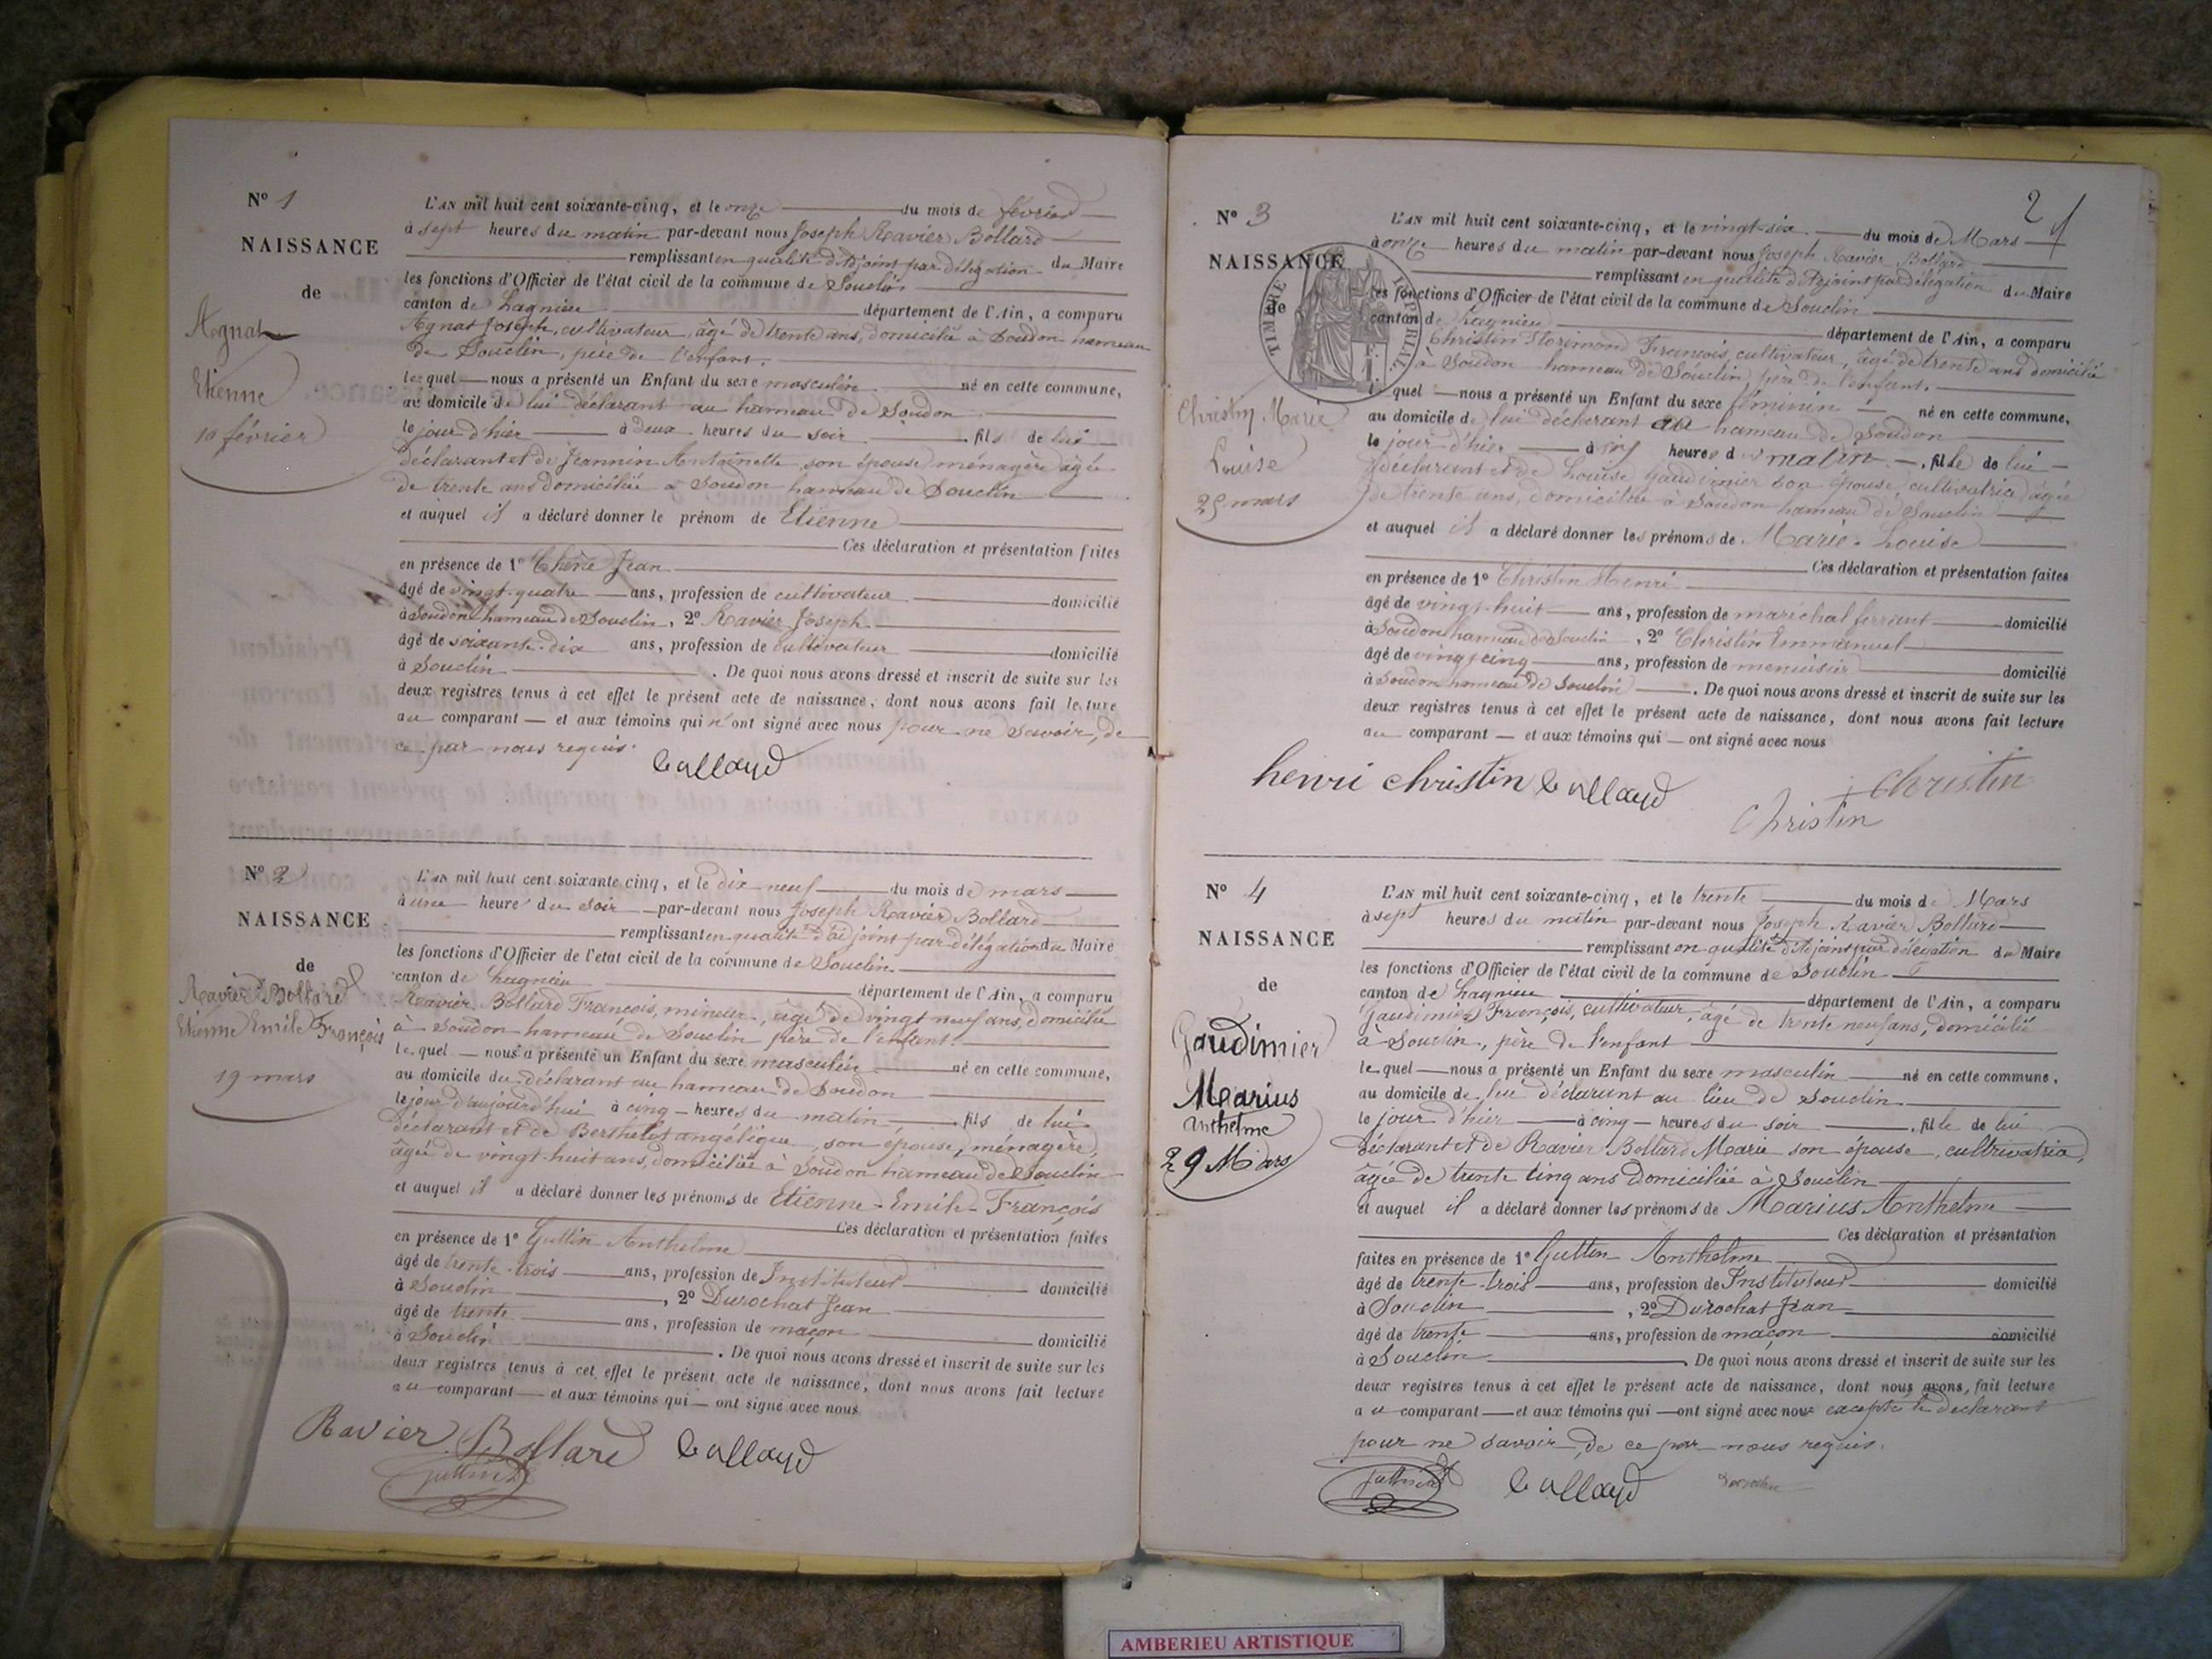 N° 1
NAISSANCE
de
Agnat
Etienne
10 février
L'AN mil huit cent soixante-cinq, et le onze du mois de février
à sept heures du matin par-devant nous Joseph Ravier Bollard
remplissant en qualité d'Adjoint par délégation du Maire
les fonctions d'Officier de l'état civil de la commune de Souclin
canton de Lagnieu département de l'Ain, a comparu
Agnat Joseph, cultivateur, âgé de trente ans, domicilié à Soudon hameau
de Souclin, père de l'enfant.
lequel nous a présenté un Enfant du sexe masculin né en cette commune,
au domicile de lui déclarant au hameau de Soudon
le jour d'hier à deux heures du soir fils de lui
déclarant et de Jeannin Antoinette son épouse ménagère âgée
de trente ans domiciliée à Soudon hameau de Souclin
et auquel il a déclaré donner le prénom de Etienne
Ces déclaration et présentation faites
en présence de 1° Jean
âgé de vingt-quatre ans, profession de cultivateur domicilié
à Soudon hameau de Souclin, 2° Ravier Joseph
âgé de soixante-dix ans, profession de cultivateur domicilié
à Souclin. De quoi nous avons dressé et inscrit de suite sur les
deux registres tenus à cet effet le présent acte de naissance, dont nous avons fait lecture
au comparant et aux témoins qui n'ont signé avec nous pour ne savoir, de
ce par nous requis.
bollard
N° 2
NAISSANCE
de
Ravier Bollard
Etienne Emile François
19 mars
L'AN mil huit cent soixante-cinq, et le dix neuf du mois de mars
à une heure du soir par-devant nous Joseph Ravier Bollard
remplissant en qualité d'adjoint par délégation du Maire
les fonctions d'Officier de l'état civil de la commune de Souclin
canton de Lagnieu département de l'Ain, a comparu
Ravier Bollard François, mineur, âgé de vingt neuf ans, domicilié
à Soudon hameau de Souclin père de l'enfant
lequel nous a présenté un Enfant du sexe masculin né en cette commune,
au domicile du déclarant au hameau de Soudon
le jour d'aujourd'hui à cinq heures du matin fils de lui
déclarant et de Berthelet angélique, son épouse, ménagère,
âgée de vingt-huit ans, domiciliée à Soudon hameau de Souclin
et auquel il a déclaré donner les prénoms de Etienne-Emile-François
Ces déclaration et présentation faites
en présence de 1° Guttin Anthelme
âgé de trente-trois ans, profession de Instituteur domicilié
à Souclin, 2° Durochat Jean
âgé de trente ans, profession de maçon domicilié
à Souclin. De quoi nous avons dressé et inscrit de suite sur les
deux registres tenus à cet effet le présent acte de naissance, dont nous avons fait lecture
au comparant et aux témoins qui ont signé avec nous
Ravier Bollard bollard
guttin
2
N° 3
NAISSANCE
de
TIMBRE IMPERIAL
Christin Marie
Louise
25 mars
L'AN mil huit cent soixante-cinq, et le vingt-six du mois de Mars
à onze heures du matin par-devant nous Joseph Ravier Bollard
remplissant en qualité d'Adjoint par délégation du Maire
les fonctions d'Officier de l'état civil de la commune de Souclin
canton de Lagnieu département de l'Ain, a comparu
Christin Florimond François, cultivateur, âgé de trente ans domicilié
à Soudon hameau de Souclin, père de l'enfant.
lequel nous a présenté un Enfant du sexe féminin né en cette commune,
au domicile de lui déclarant au hameau de Soudon
le jour d'hier à six heures du matin, fille de lui
déclarant et de Louise Gaudimier son épouse, cultivatrice âgée
de trente ans, domiciliée à Soudon hameau de Souclin
et auquel il a déclaré donner les prénoms de Marie-Louise
Ces déclaration et présentation faites
en présence de 1° Christin Henri
âgé de vingt-huit ans, profession de maréchal ferrant domicilié
à Soudon hameau de Souclin, 2° Christin Emmanuel
âgé de vingt cinq ans, profession de menuisier domicilié
à Soudon hameau de Souclin. De quoi nous avons dressé et inscrit de suite sur les
deux registres tenus à cet effet le présent acte de naissance, dont nous avons fait lecture
au comparant et aux témoins qui ont signé avec nous
henri christin bollard christin
Christin
N° 4
NAISSANCE
de
Gaudimier
Marius
anthelme
29 Mars
L'AN mil huit cent soixante-cinq, et le trente du mois de Mars
à sept heures du matin par-devant nous Joseph Ravier Bollard
remplissant en qualité d'Adjoint par délégation du Maire
les fonctions d'Officier de l'état civil de la commune de Souclin
canton de Lagnieu département de l'Ain, a comparu
Gaudimier François, cultivateur, âgé de trente neuf ans, domicilié
à Souclin, père de l'enfant
lequel nous a présenté un Enfant du sexe masculin né en cette commune,
au domicile de lui déclarant au lieu de Souclin
le jour d'hier à cinq heures du soir, fils de lui
déclarant et de Ravier Bollard Marie son épouse, cultivatrice,
âgée de trente cinq ans domiciliée à Souclin
et auquel il a déclaré donner les prénoms de Marius Anthelme
Ces déclaration et présentation
faites en présence de 1° Guttin Anthelme
âgé de trente-trois ans, profession de Instituteur domicilié
à Souclin, 2° Durochat Jean
âgé de trente ans, profession de maçon domicilié
à Souclin. De quoi nous avons dressé et inscrit de suite sur les
deux registres tenus à cet effet le présent acte de naissance, dont nous avons fait lecture
au comparant et aux témoins qui ont signé avec nous excepté le déclarant
pour ne savoir, de ce par nous requis.
guttin bollard
AMBERIEU ARTISTIQUE